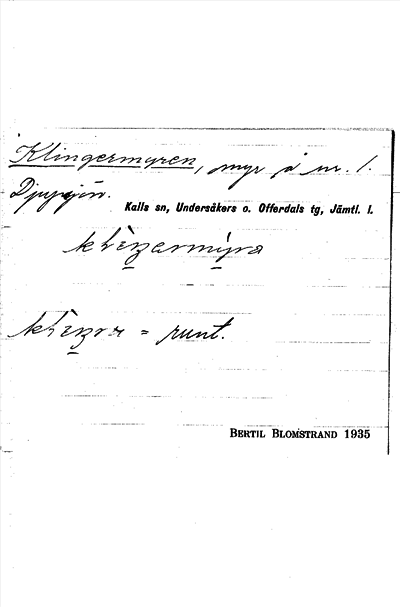 Klingermyren, myr å nr. 1.
Djupsjön.
Kalls sn, Undersåkers o. Offerdals tg, Jämtl. l.
= runt.
BERTIL BLOMSTRAND 1935